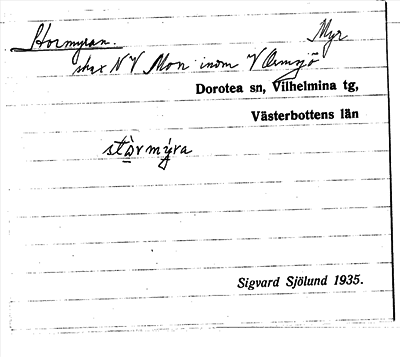 Stormyran. Myr
strax N V Mon inom V Ormsjö
Dorotea sn, Vilhelmina tg,
Västerbottens län
stòrmýra
Sigvard Sjölund 1935.